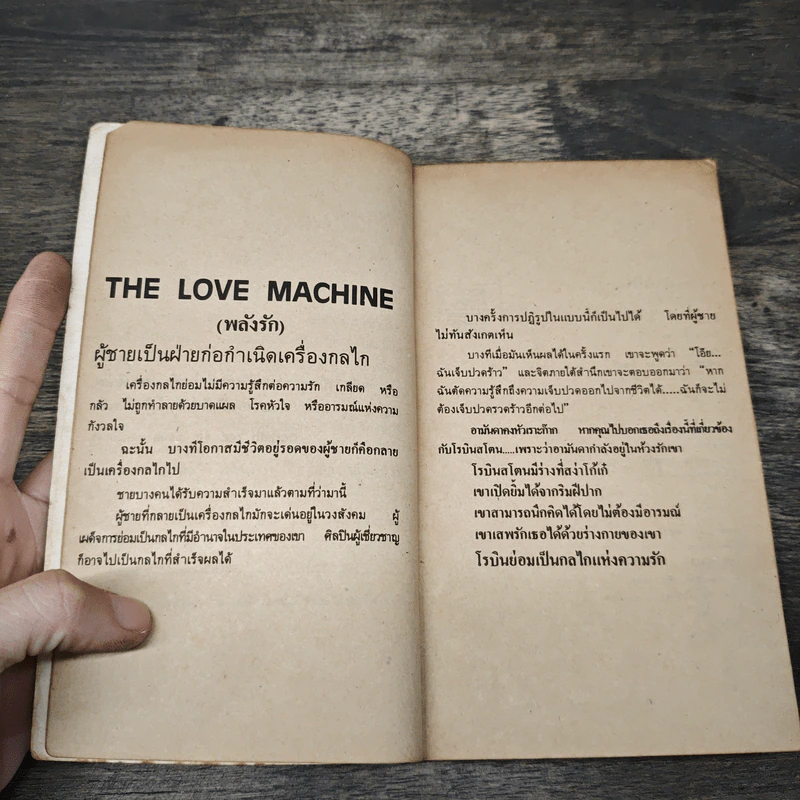 THE LOVE MACHINE
(พลังรัก)
ผู้ชายเป็นฝ่ายก่อกำเนิดเครื่องกลไก
เครื่องกลไกย่อมไม่มีความรู้สึกต่อความรัก เกลียด หรือ
กลัว ไม่ถูกทำลายด้วยบาดแผล โรคหัวใจ หรืออารมณ์แห่งความ
กังวลใจ
ฉะนั้น บางทีโอกาสมีชีวิตอยู่รอดของผู้ชายก็คือกลาย
เป็นเครื่องกลไกไป
ชายบางคนได้รับความสำเร็จมาแล้วตามที่ว่ามานี้
ผู้ชายที่กลายเป็นเครื่องกลไกมักจะเด่นอยู่ในวงสังคม ผู้
เผด็จการย่อมเป็นกลไกที่มีอำนาจในประเทศของเขา ศิลปินผู้เชี่ยวชาญ
ก็อาจไปเป็นกลไกที่สำเร็จผลได้
บางครั้งการปฏิรูปในแบบนี้ก็เป็นไปได้ โดยที่ผู้ชาย
ไม่ทันสังเกตเห็น
บางทีเมื่อมันเห็นผลได้ในครั้งแรก เขาจะพูดว่า “โอ๊ย...
ฉันเจ็บปวดร้าว” และจิตภายใต้สำนึกเขาจะตอบออกมาว่า “หาก
ฉันตัดความรู้สึกถึงความเจ็บปวดออกไปจากชีวิตได้.....ฉันก็จะไม่
ต้องเจ็บปวดรวดร้าวอีกต่อไป”
อามันดาคงหัวเราะก๊าก หากคุณไปบอกเธอถึงเรื่องนี้ที่เกี่ยวข้อง
กับโรบินสโตน.....เพราะว่าอามันดากำลังอยู่ในห้วงรักเขา
โรบินสโตนมีร่างที่สง่าโก้เก๋
เขาเปิดยิ้มได้จากริมฝีปาก
เขาสามารถนึกคิดได้โดยไม่ต้องมีอารมณ์
เขาเสพรักเธอได้ด้วยร่างกายของเขา
โรบินย่อมเป็นกลไกแห่งความรัก